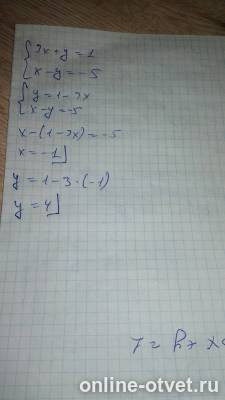 { 3x+y=1
x-y=-5
{ y=1-3x
x-y=-5
x-(1-3x)=-5
x=-1
y=1-3·(-1)
y=4
online-otvet.ru